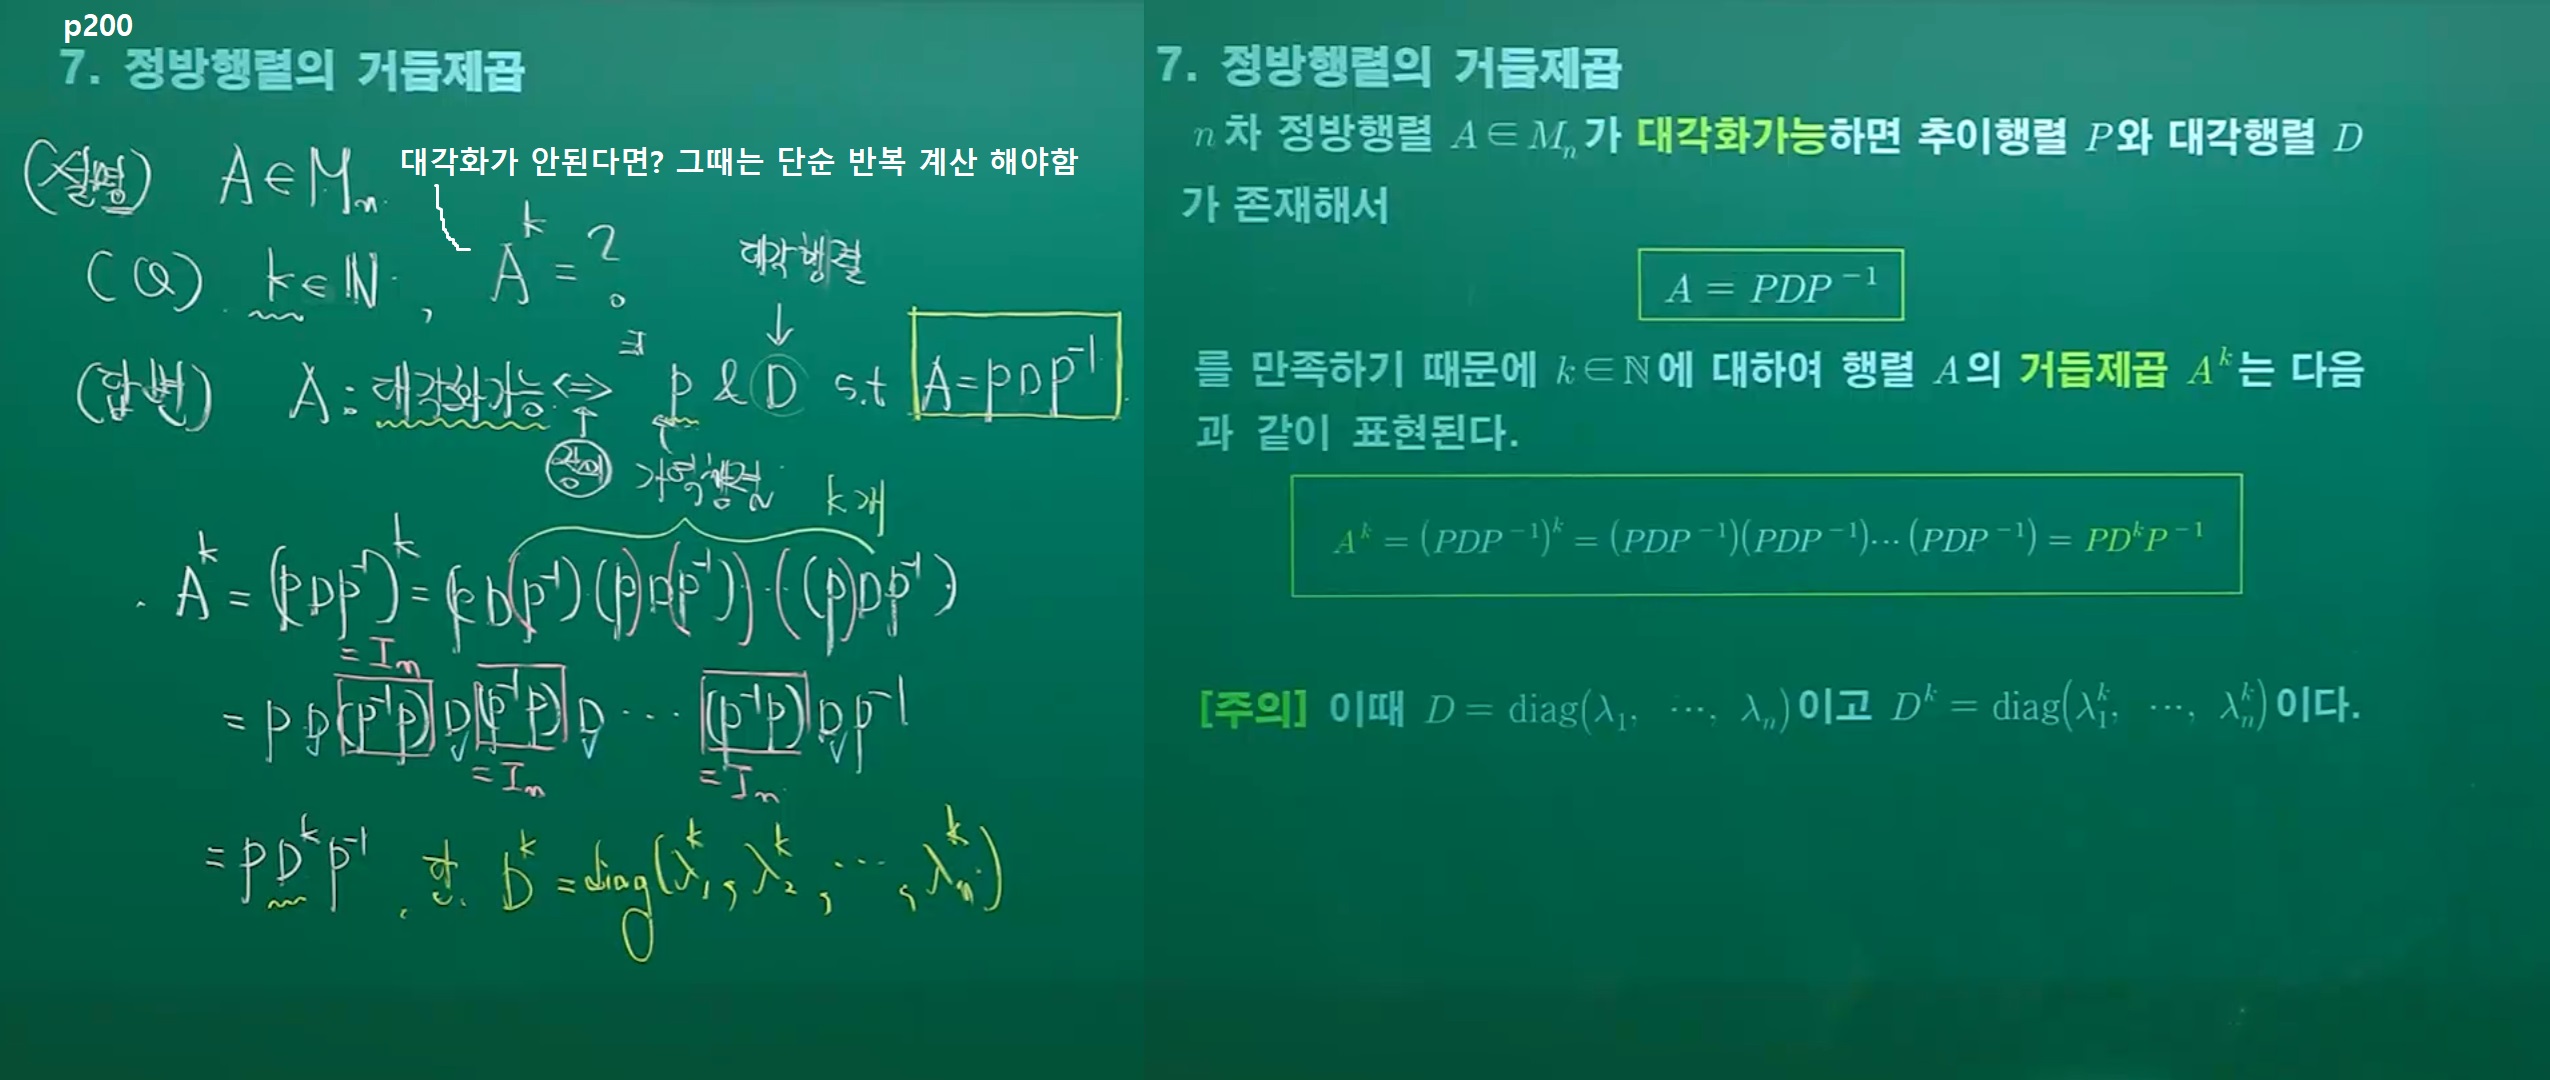 p200
7. 정방행렬의 거듭제곱
(설명) A∈Mₙ
대각화가 안된다면? 그때는 단순 반복 계산 해야함
(Q). k∈ℕ, Aᵏ = ?
대각행렬
(답변) A : 대각화가능 <=> ∃ P & D s.t A=PDP⁻¹
정의 가역행렬
k개
Aᵏ = (PDP⁻¹)ᵏ = (PDP⁻¹)·(PDP⁻¹)···(PDP⁻¹)
= Iₙ
= PD(P⁻¹P)D(P⁻¹P)D ··· (P⁻¹P)DP⁻¹
= Iₙ = Iₙ
= PDᵏP⁻¹. 단. Dᵏ = diag(λ₁ᵏ, λ₂ᵏ, ···, λₙᵏ)
7. 정방행렬의 거듭제곱
n차 정방행렬 A∈Mₙ가 대각화가능하면 추이행렬 P와 대각행렬 D
가 존재해서
A = PDP⁻¹
를 만족하기 때문에 k∈ℕ에 대하여 행렬 A의 거듭제곱 Aᵏ는 다음
과 같이 표현된다.
Aᵏ = (PDP⁻¹)ᵏ = (PDP⁻¹)(PDP⁻¹)···(PDP⁻¹) = PDᵏP⁻¹
[주의] 이때 D = diag(λ₁, ···, λₙ)이고 Dᵏ = diag(λ₁ᵏ, ···, λₙᵏ)이다.